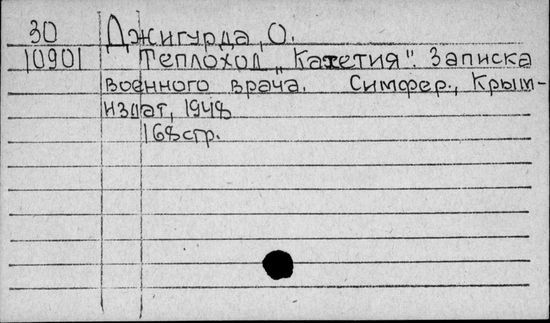 30 Джигурда, О.
10901 Теплоход „Кахетия". Записка
военного врача. Симфер., Крым-
издат, 1948
168стр.